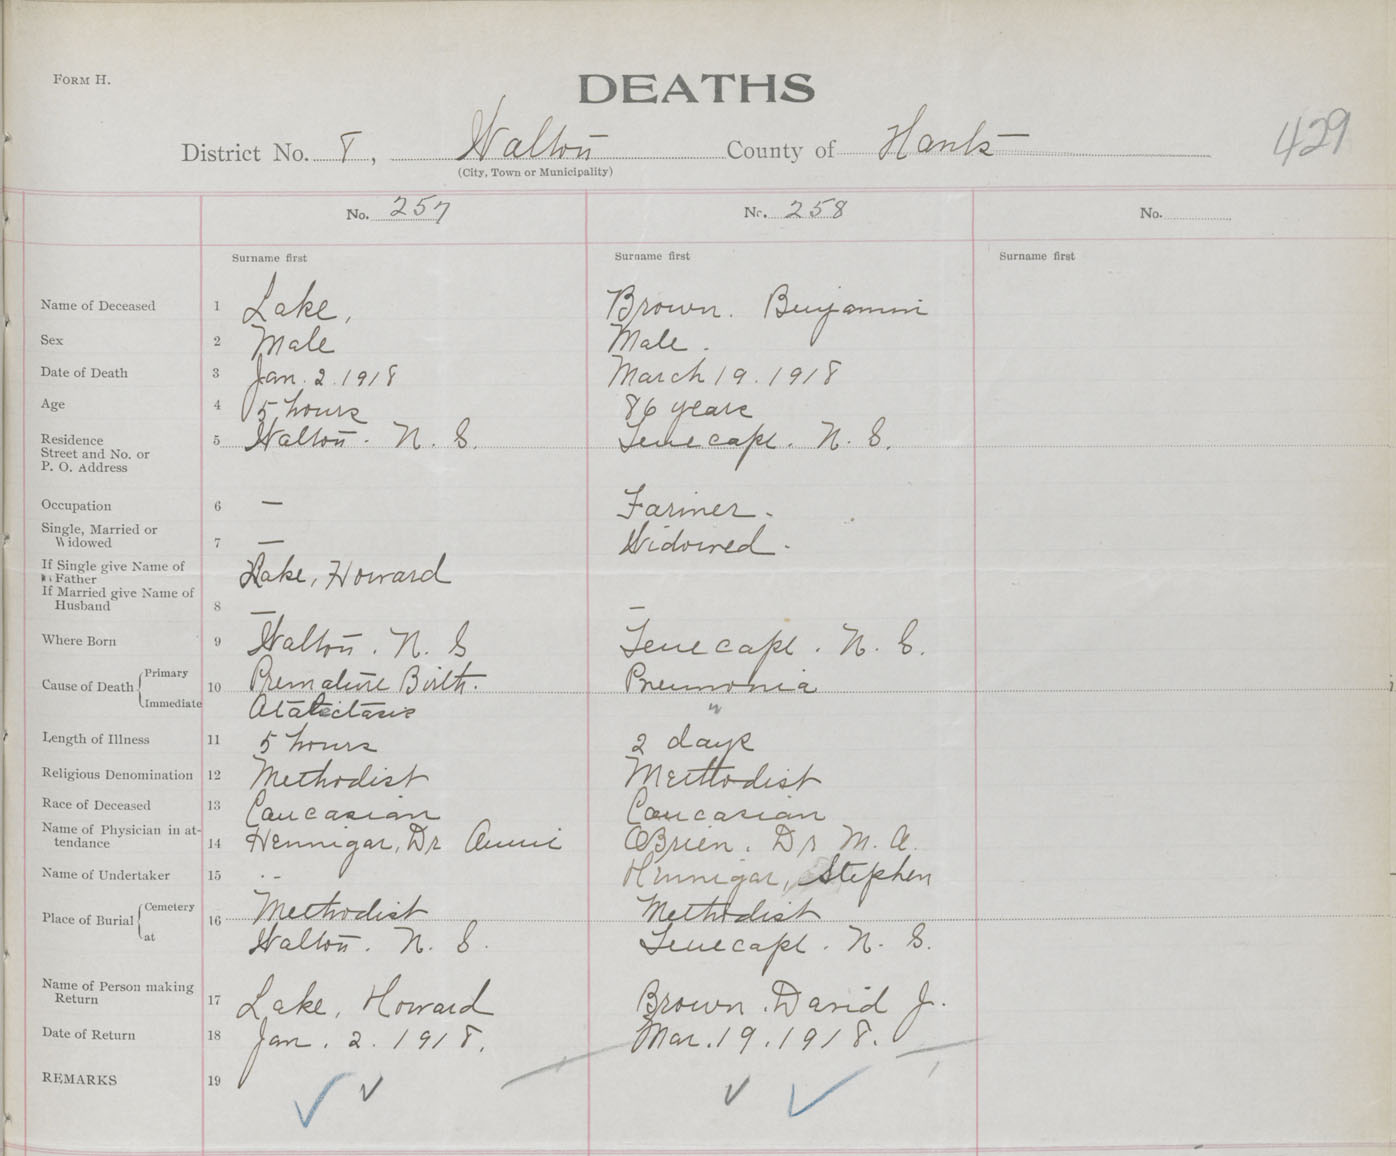 FORM H.
DEATHS
429
District No. 8, Walton County of Hants
(City, Town or Municipality)
No. 257 No. 258 No.
Surname first Surname first Surname first
Name of Deceased 1 Lake, Brown. Benjamin
Sex 2 Male Male.
Date of Death 3 Jan. 2. 1918 March 19. 1918
Age 4 5 hours 86 years
Residence 5 Walton. N. S. Tenecape. N. S.
Street and No. or
P. O. Address
Occupation 6 — Farmer.
Single, Married or
Widowed 7 — Widowed.
If Single give Name of
Father Lake, Howard
If Married give Name of
Husband 8 — —
Where Born 9 Walton. N. S Tenecape. N. S.
Cause of Death Primary 10 Premature Birth. Pneumonia
Immediate "
Length of Illness 11 5 hours 2 days
Religious Denomination 12 Methodist Methodist
Race of Deceased 13 Caucasian Caucasian
Name of Physician in at-
tendance 14 Hennigar, Dr O'Brien. Dr M. A.
Name of Undertaker 15 Hennigar, Stephen
Place of Burial Cemetery 16 Methodist Methodist
at Walton. N. S. Tenecape. N. S.
Name of Person making
Return 17 Lake, Howard Brown. David J.
Date of Return 18 Jan. 2. 1918. Mar. 19. 1918.
REMARKS 19